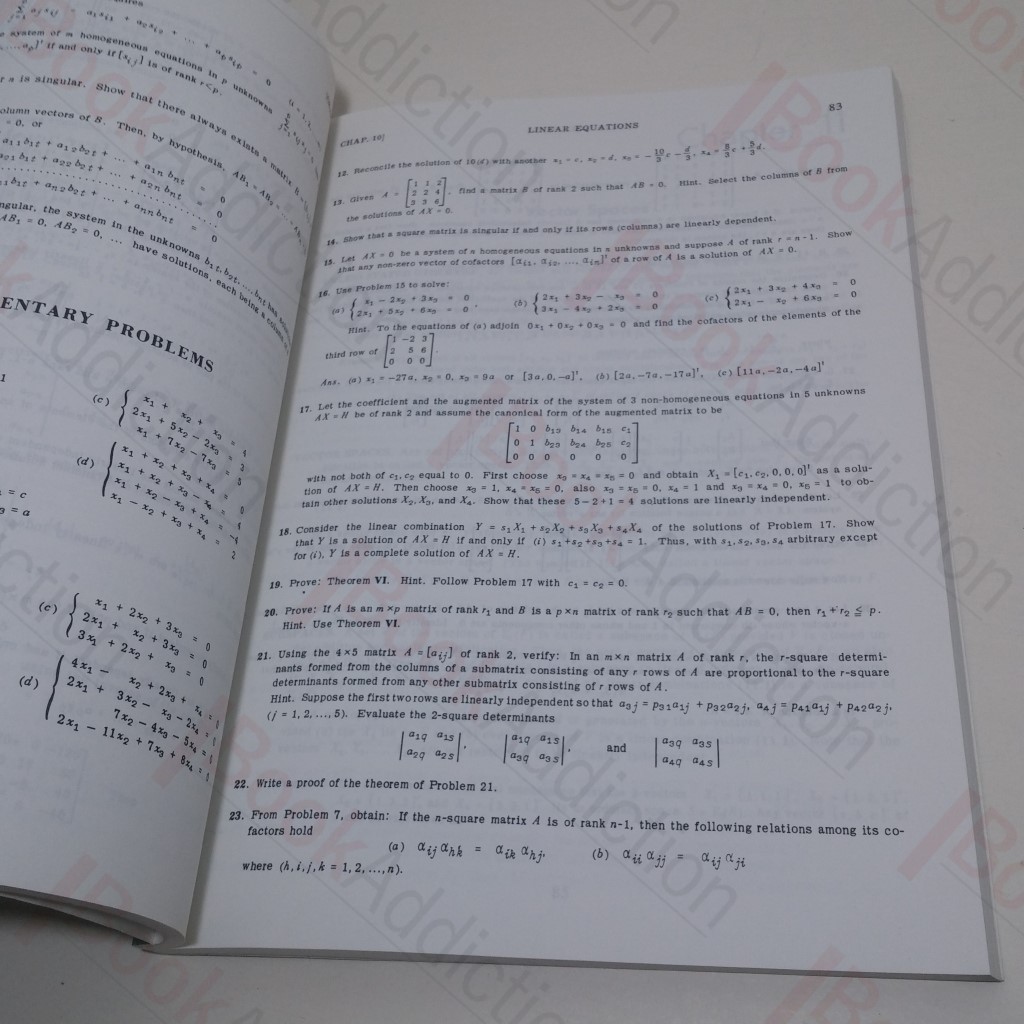 a_j s_ij = a_1 s_i1 + a_2 s_i2 + ... + a_p s_ip = 0
system of m homogeneous equations in p unknowns
if and only if [s_ij] is of rank r<p.
is singular. Show that there always exists a matrix B
column vectors of B. Then, by hypothesis, AB₁ = AB₂
= 0, or
a₁₁b₁t + a₁₂b₂t + ... + a₁ₙbₙt 0
a₂₁b₁t + a₂₂b₂t + ... + a₂ₙbₙt 0
b₁t + aₙ₂b₂t + ... + aₙₙbₙt = 0
the system in the unknowns b₁t, b₂t, ..., bₙt has
AB₁ = 0, AB₂ = 0, ... have solutions, each being a column
ENTARY PROBLEMS
(c) { x₁ + x₂ + x₃ = 4
2x₁ + 5x₂ - 2x₃ = 3
x₁ + 7x₂ - 7x₃ = 5
(d) { x₁ + x₂ + x₃ + x₄ = 0
x₁ + x₂ + x₃ - x₄ = 4
x₁ + x₂ - x₃ + x₄ = -4
x₁ - x₂ + x₃ + x₄ = 2
= c
= a
(c) { x₁ + 2x₂ + 3x₃ = 0
2x₁ + x₂ + 3x₃ = 0
3x₁ + 2x₂ + x₃ = 0
(d) { 4x₁ - x₂ + 2x₃ + x₄ = 0
2x₁ + 3x₂ - x₃ - 2x₄ = 0
7x₂ - 4x₃ - 5x₄ = 0
2x₁ - 11x₂ + 7x₃ + 8x₄ = 0
CHAP. 10] LINEAR EQUATIONS 83
12. Reconcile the solution of 10(d) with another x₁ = c, x₂ = d, x₃ = -10/3 c - d/3, x₄ = 8/3 c + 5/3 d.
13. Given A = [1 1 2
2 2 4
3 3 6], find a matrix B of rank 2 such that AB = 0. Hint. Select the columns of B from
the solutions of AX = 0.
14. Show that a square matrix is singular if and only if its rows (columns) are linearly dependent.
15. Let AX = 0 be a system of n homogeneous equations in n unknowns and suppose A of rank r = n-1. Show
that any non-zero vector of cofactors [αi1, αi2, ..., αin]' of a row of A is a solution of AX = 0.
16. Use Problem 15 to solve:
(a) { x₁ - 2x₂ + 3x₃ = 0 (b) { 2x₁ + 3x₂ - x₃ = 0 (c) { 2x₁ + 3x₂ + 4x₃ = 0
2x₁ + 5x₂ + 6x₃ = 0, 3x₁ - 4x₂ + 2x₃ = 0 2x₁ - x₂ + 6x₃ = 0
Hint. To the equations of (a) adjoin 0x₁ + 0x₂ + 0x₃ = 0 and find the cofactors of the elements of the
third row of [1 -2 3
2 5 6
0 0 0].
Ans. (a) x₁ = -27a, x₂ = 0, x₃ = 9a or [3a, 0, -a]', (b) [2a, -7a, -17a]', (c) [11a, -2a, -4a]'
17. Let the coefficient and the augmented matrix of the system of 3 non-homogeneous equations in 5 unknowns
AX = H be of rank 2 and assume the canonical form of the augmented matrix to be
[1 0 b₁₃ b₁₄ b₁₅ c₁
0 1 b₂₃ b₂₄ b₂₅ c₂
0 0 0 0 0 0]
with not both of c₁, c₂ equal to 0. First choose x₃ = x₄ = x₅ = 0 and obtain X₁ = [c₁, c₂, 0, 0, 0]' as a solu-
tion of AX = H. Then choose x₃ = 1, x₄ = x₅ = 0, also x₃ = x₅ = 0, x₄ = 1 and x₃ = x₄ = 0, x₅ = 1 to ob-
tain other solutions X₂, X₃, and X₄. Show that these 5-2+1 = 4 solutions are linearly independent.
18. Consider the linear combination Y = s₁X₁ + s₂X₂ + s₃X₃ + s₄X₄ of the solutions of Problem 17. Show
that Y is a solution of AX = H if and only if (i) s₁+s₂+s₃+s₄ = 1. Thus, with s₁, s₂, s₃, s₄ arbitrary except
for (i), Y is a complete solution of AX = H.
19. Prove: Theorem VI. Hint. Follow Problem 17 with c₁ = c₂ = 0.
20. Prove: If A is an m×p matrix of rank r₁ and B is a p×n matrix of rank r₂ such that AB = 0, then r₁ + r₂ ≦ p.
Hint. Use Theorem VI.
21. Using the 4×5 matrix A = [aij] of rank 2, verify: In an m×n matrix A of rank r, the r-square determi-
nants formed from the columns of a submatrix consisting of any r rows of A are proportional to the r-square
determinants formed from any other submatrix consisting of r rows of A.
Hint. Suppose the first two rows are linearly independent so that a₃j = p₃₁a₁j + p₃₂a₂j, a₄j = p₄₁a₁j + p₄₂a₂j,
(j = 1, 2, ..., 5). Evaluate the 2-square determinants
|a₁q a₁s| |a₁q a₁s| and |a₃q a₃s|
|a₂q a₂s|, |a₃q a₃s|, |a₄q a₄s|
22. Write a proof of the theorem of Problem 21.
23. From Problem 7, obtain: If the n-square matrix A is of rank n-1, then the following relations among its co-
factors hold
(a) αij αhk = αik αhj, (b) αii αjj = αij αji
where (h, i, j, k = 1, 2, ..., n).